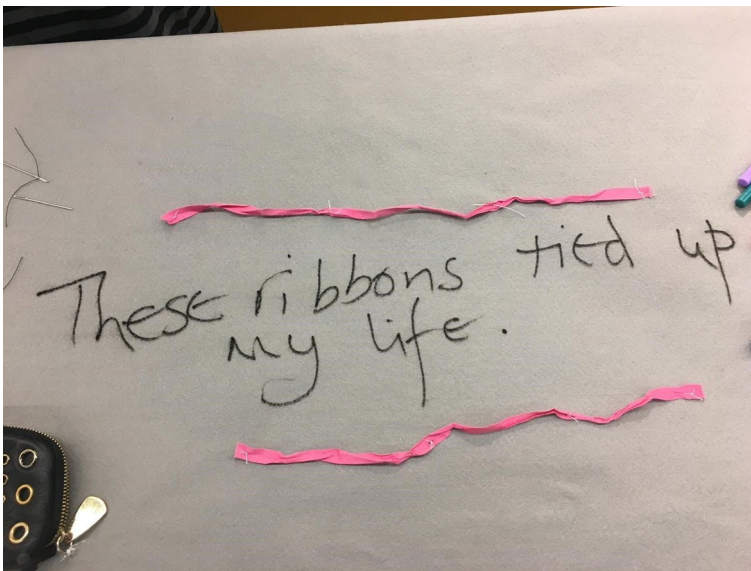 These ribbons tied up
my life.